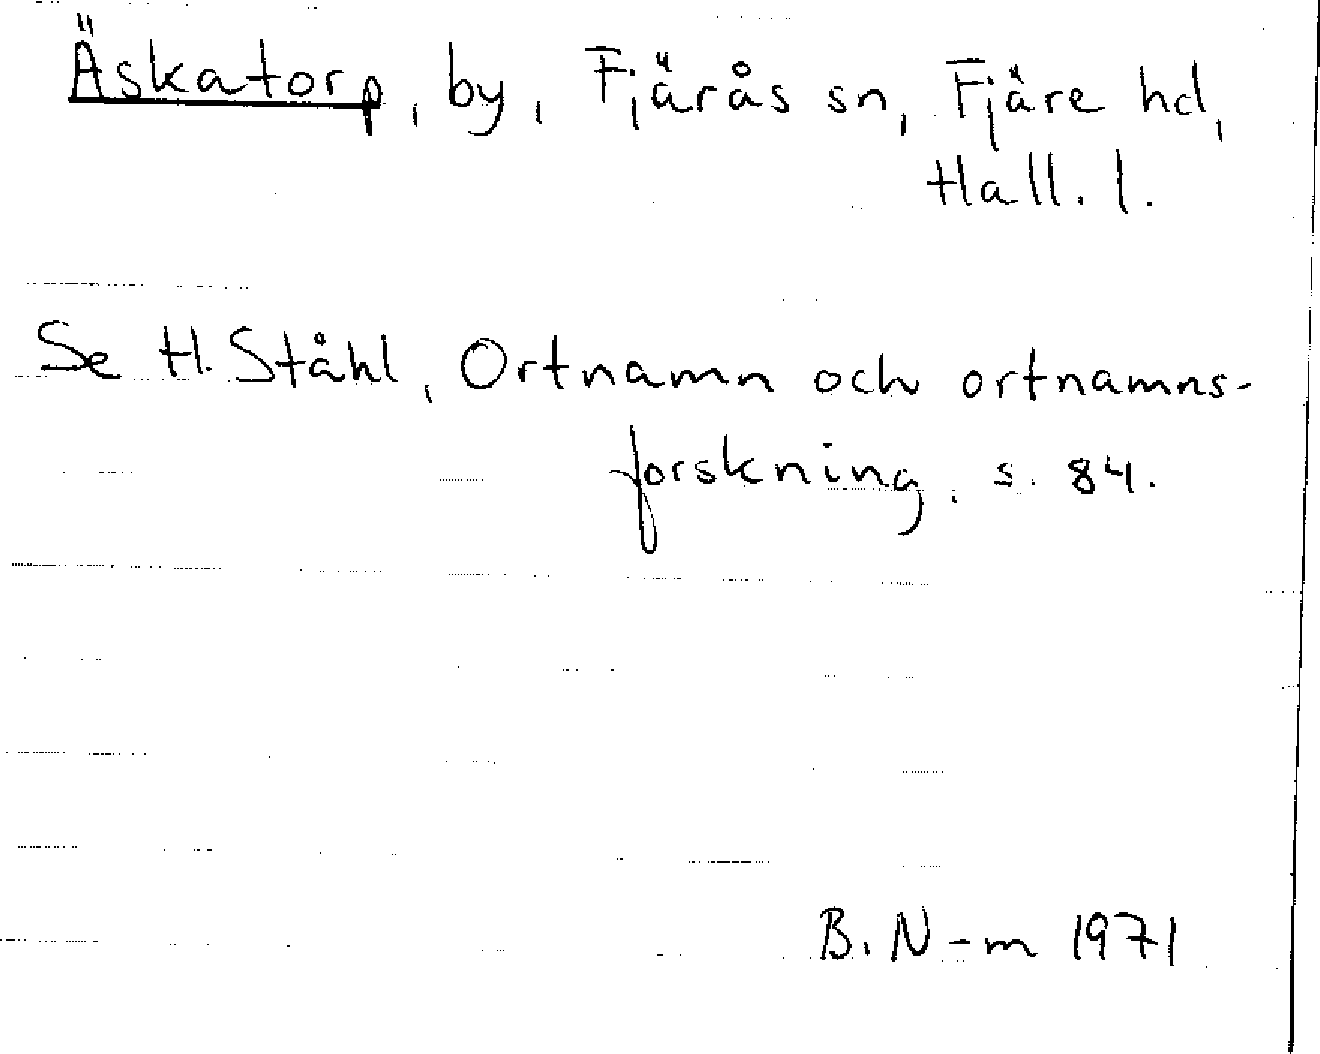 Äskatorp, by, Fjärås sn, Fjäre hd,
Hall. l.
Se H. Ståhl, Ortnamn och ortnamns-
forskning, s. 84.
B. N-m 1971